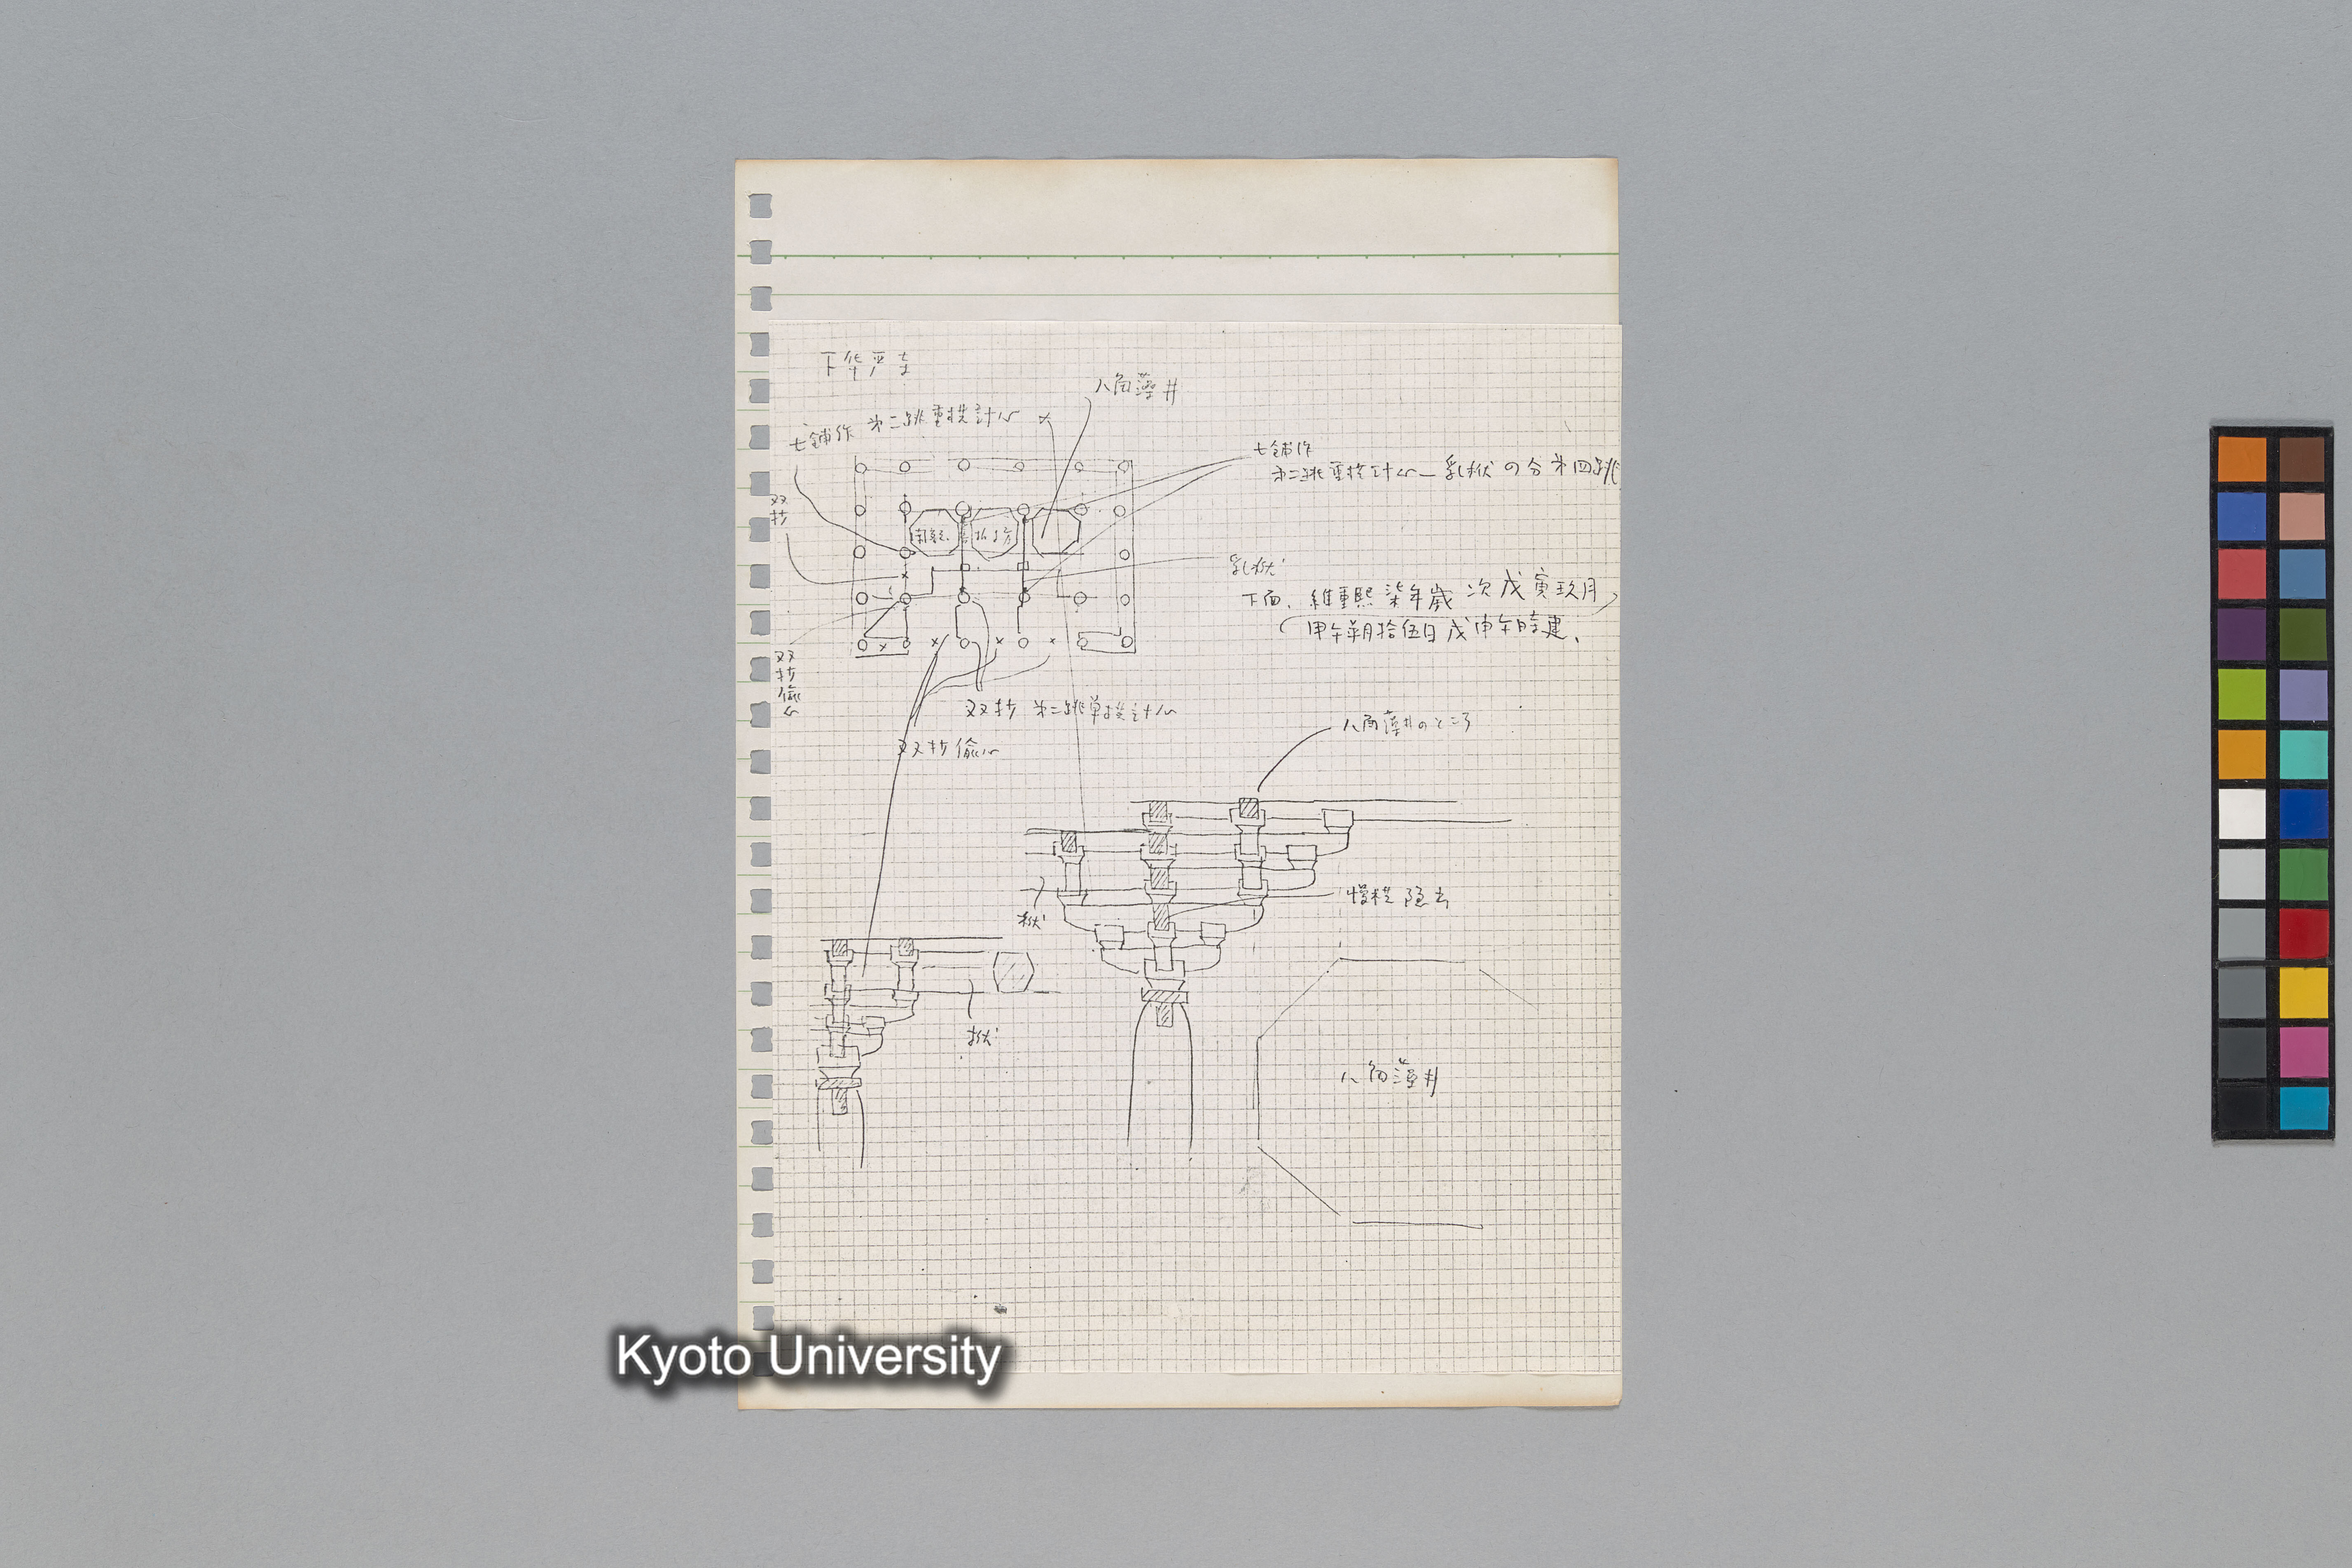 下华严寺
八角藻井
七鋪作 第二跳重拱計心 ×
七鋪作
第二跳重拱計心 — 乳栿の分第四跳
双抄
乳栿
下面、維重熙柒年歲次戊寅玖月
甲午朔拾伍日戊申午時建、
双抄偸心
双抄 第二跳単拱計心
双抄偸心
八角藻井のところ
慢拱隠出
栿
栿
八角藻井
Kyoto University